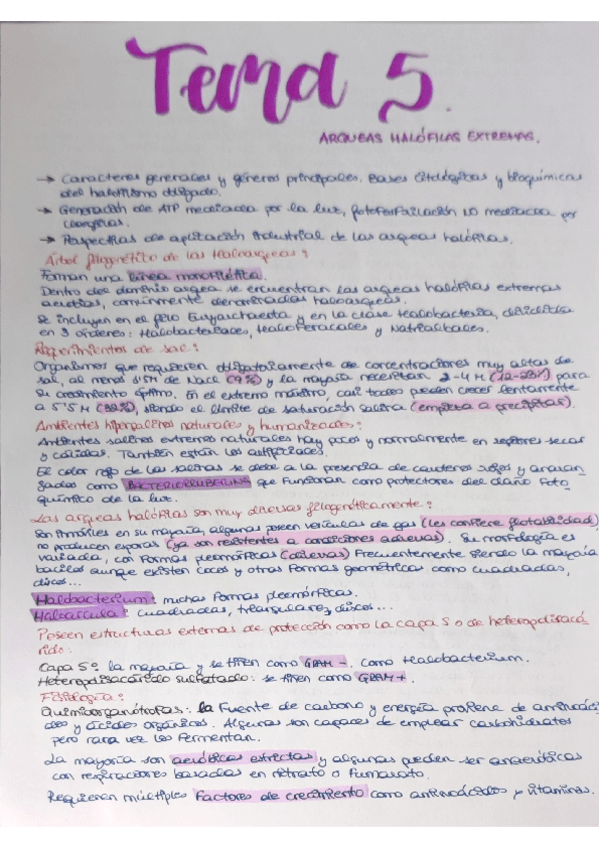 Tema 5.
ARQUEAS HALÓFILAS EXTREMAS.
→ Caracteres generales y géneros principales. Bases citológicas y bioquímicas
del halofilismo obligado.
→ Generación de ATP mediada por la luz, fotofosforilación no mediada por
clorofilas.
→ Perspectivas de aplicación industrial de las arqueas halófilas.
Árbol filogenético de las Haloarqueas:
Forman una línea monofilética.
Dentro del dominio arquea se encuentran las arqueas halófilas extremas
aerobias, comúnmente denominadas haloarqueas.
Se incluyen en el filo Euryarchaeota y en la clase Halobacteria, dividida
en 3 órdenes: Halobacteriales, Haloferacales y Natrialbales.
Requerimientos de sal:
Organismos que requieren obligatoriamente de concentraciones muy altas de
sal, al menos 1'5M de NaCl (9%) y la mayoría necesitan 2-4M (12-23%) para
su crecimiento óptimo. En el extremo máximo, casi todos pueden crecer lentamente
a 5'5M (32%), siendo el límite de saturación salina (empieza a precipitar).
Ambientes hipersalinos naturales y humanizados:
Ambientes salinos extremos naturales hay pocos y normalmente en regiones secas
y cálidas. También están los artificiales.
El color rojo de las salinas se debe a la presencia de carotenos rojos y anaran
jados como BACTERIORRUBERINAS que funcionan como protectores del daño foto
químico de la luz.
Las arqueas halófilas son muy diversas filogenéticamente:
Son inmóviles en su mayoría, algunas poseen vesículas de gas (les confiere flotabilidad)
no producen esporas (ya son resistentes a condiciones adversas). Su morfología es
variada, con formas pleomórficas (diversas) Frecuentemente siendo la mayoría
bacilos aunque existen cocos y otras formas geométricas como cuadradas,
discos...
Halobacterium: muchas formas pleomórficas.
Haloarcula: cuadradas, triangulares, discos...
Poseen estructuras externas de protección como la capa S o de heteropolisacá
rido:
Capa S: la mayoría y se tiñen como GRAM -. como Halobacterium.
Heteropolisacárido sulfatado: se tiñen como GRAM +.
Fisiología:
Quimiorganótrofas: la fuente de carbono y energía proviene de aminoáci
dos y ácidos orgánicos. Algunas son capaces de emplear carbohidratos
pero rara vez los fermentan.
La mayoría son aeróbicas estrictas y algunas pueden ser anaeróbicas
con respiraciones basadas en nitrato o fumarato.
Requieren múltiples factores de crecimiento como aminoácidos y vitaminas.